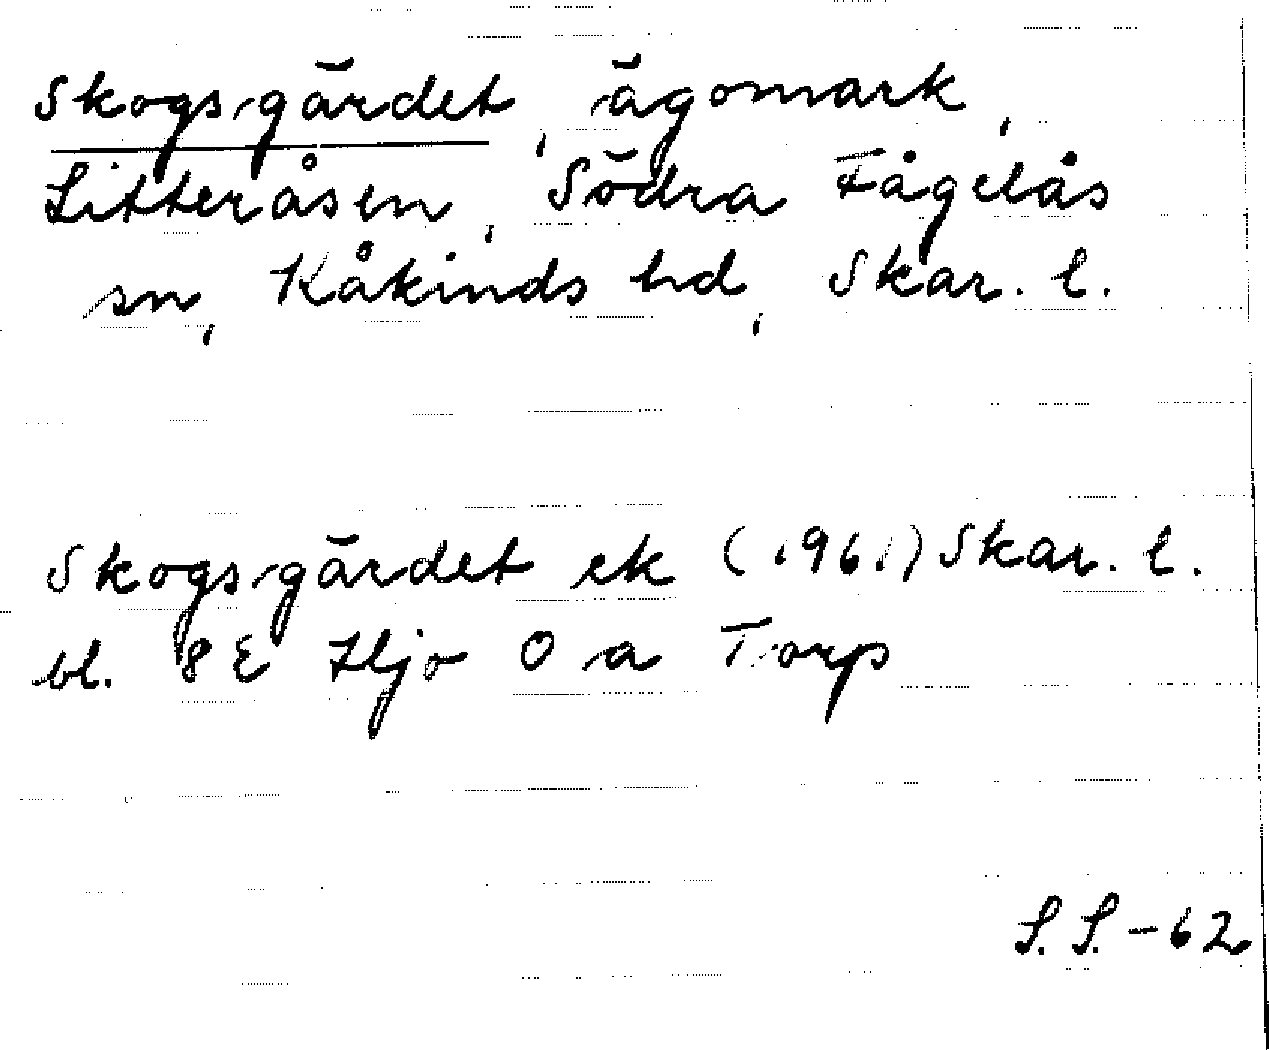 Skogsgärdet, ägomark,
Litteråsen, Södra Fågelås
sn, Kåkinds hd, Skar. l.
Skogsgärdet ek (1961) Skar. l.
bl. 8E Hjo O a Torp
S. S. - 62